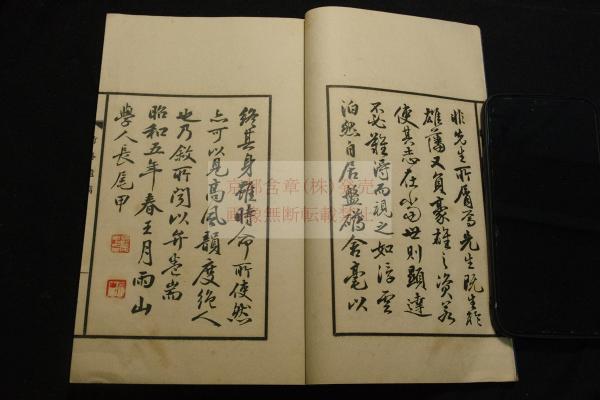 非先生所屑為先生既生於
雄藩又負豪雄之資若
使其志在當世則顯達
不必難得而視之如浮雲
泊然自居盤礴含毫以
終其身雖時命所使然
亦可以見高風韻度絶人
也乃敘所聞以弁卷耑
昭和五年春王月雨山
學人長尾甲
京都含章(株)発売
画像無断転載禁止